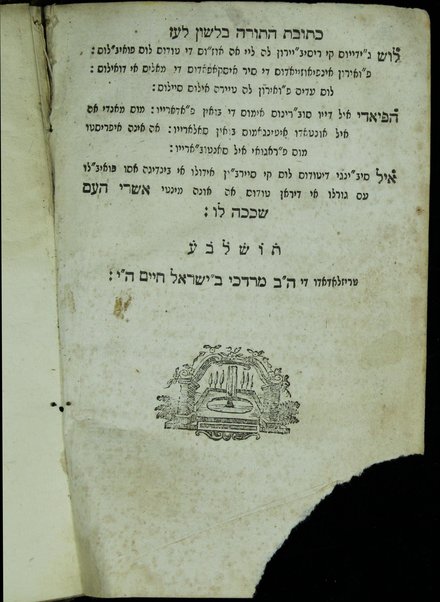 כתובת התורה בלשון לעז
לוש ג'ידייוס קי ריסיב'יירון לה ליי אה אוז'וס די טודוס לוס פואיב'לוס :
פ'ואירון אינפואיזייאדוס די סיר איסקאפאדוס די מאלוס אי דואילוס :
לוס עדים פ'ואירון לה טיירה אילוס סילוס :
הפיאדי איל דייו סוב'רינוס אימוס די בואין פ'אדאריו : מוס מאנדי אה
איל אונטאדו איטיננאמוס בואין סאלאריו : אה אינה איפריסטו
מוס פ'ראגואי איל סאנטוב'אריו :
איל סיב'ינטי דיטודוס לוס קי סירב'ין אידולו אי בינדיגה אסו פואיב'לו
עם גורלו אי דיראן טודוס אה אונה מינטי אשרי העם
שככה לו :
תושלבע
טריזלאדאדו די ה"ב מרדכי ב"ישראל חיים ה"י :